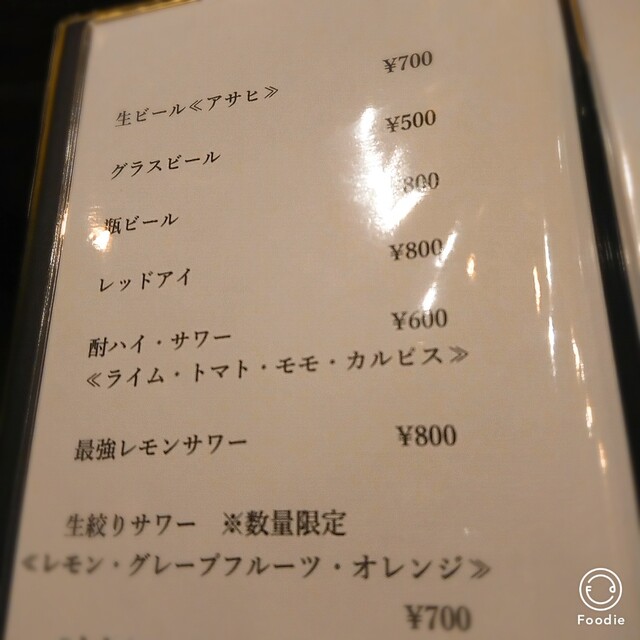 ¥700
生ビール≪アサヒ≫
¥500
グラスビール
800
瓶ビール
¥800
レッドアイ
¥600
酎ハイ・サワー
≪ライム・トマト・モモ・カルピス≫
最強レモンサワー ¥800
生絞りサワー ※数量限定
≪レモン・グレープフルーツ・オレンジ≫
¥700
Foodie